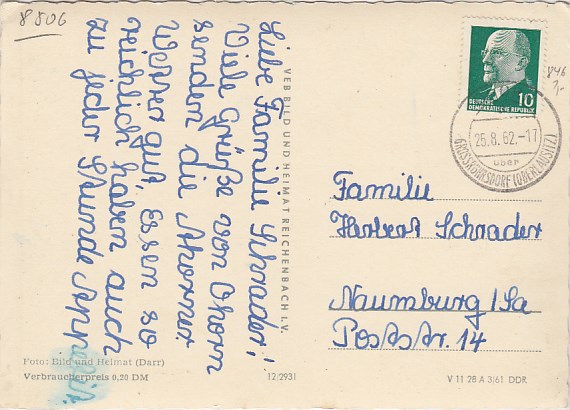 8806
Liebe Familie Schrader!
Viele Grüße von Ohorn
senden die Ahorner.
Wetter gut, Essen so
reichlich haben auch
zu jeder Stunde Appetit.
VEB BILD UND HEIMAT REICHENBACH I.V.
DEUTSCHE
DEMOKRATISCHE REPUBLIK
10
846
25.8.62.-17
über
GROSSRÖHRSDORF (OBERLAUSITZ)
Familie
Herbert Schrader
Naumburg/Sa
Poststr. 14
Foto: Bild und Heimat (Darr)
Verbraucherpreis 0,20 DM
12/2931
V 11 28 A 3/61 DDR